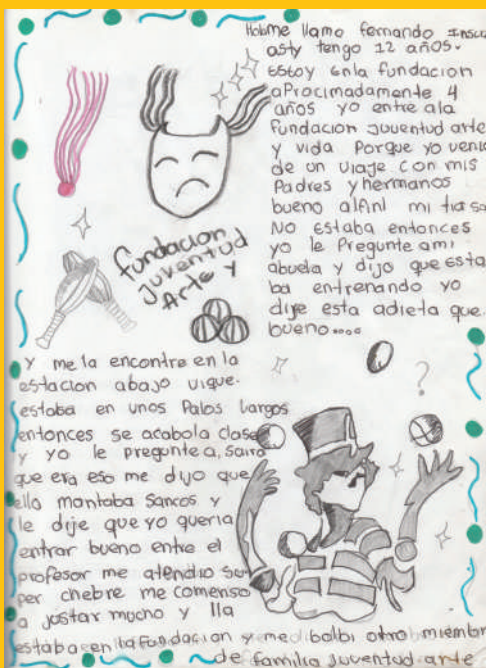 Hola me llamo fernando Insua
asty tengo 12 años.
Estoy enla fundacion
aprocimadamente 4
años yo entre ala
Fundacion Juventud arte
y vida Porque yo venia
de un viaje con mis
Padres y hermanos
bueno alfinl mi tia sa
NO estaba entonces
yo le Pregunte ami
abuela y dijo que esta
ba entrenando yo
dije esta adieta que.
bueno....
fundacion
Juventud
Arte y
y me la encontre en la
estacion abajo
estaba en unos Palos largos
entonces se acabola clase
y yo le pregunte a,
que era eso me dijo que
ella montaba sancos y
le dije que yo queria
entrar bueno entre el
profesor me atendio su
per chebre me comenso
a justar mucho y lla
estaba en la fundacion y me bolbi otro miembr
de familia juventud arte
?